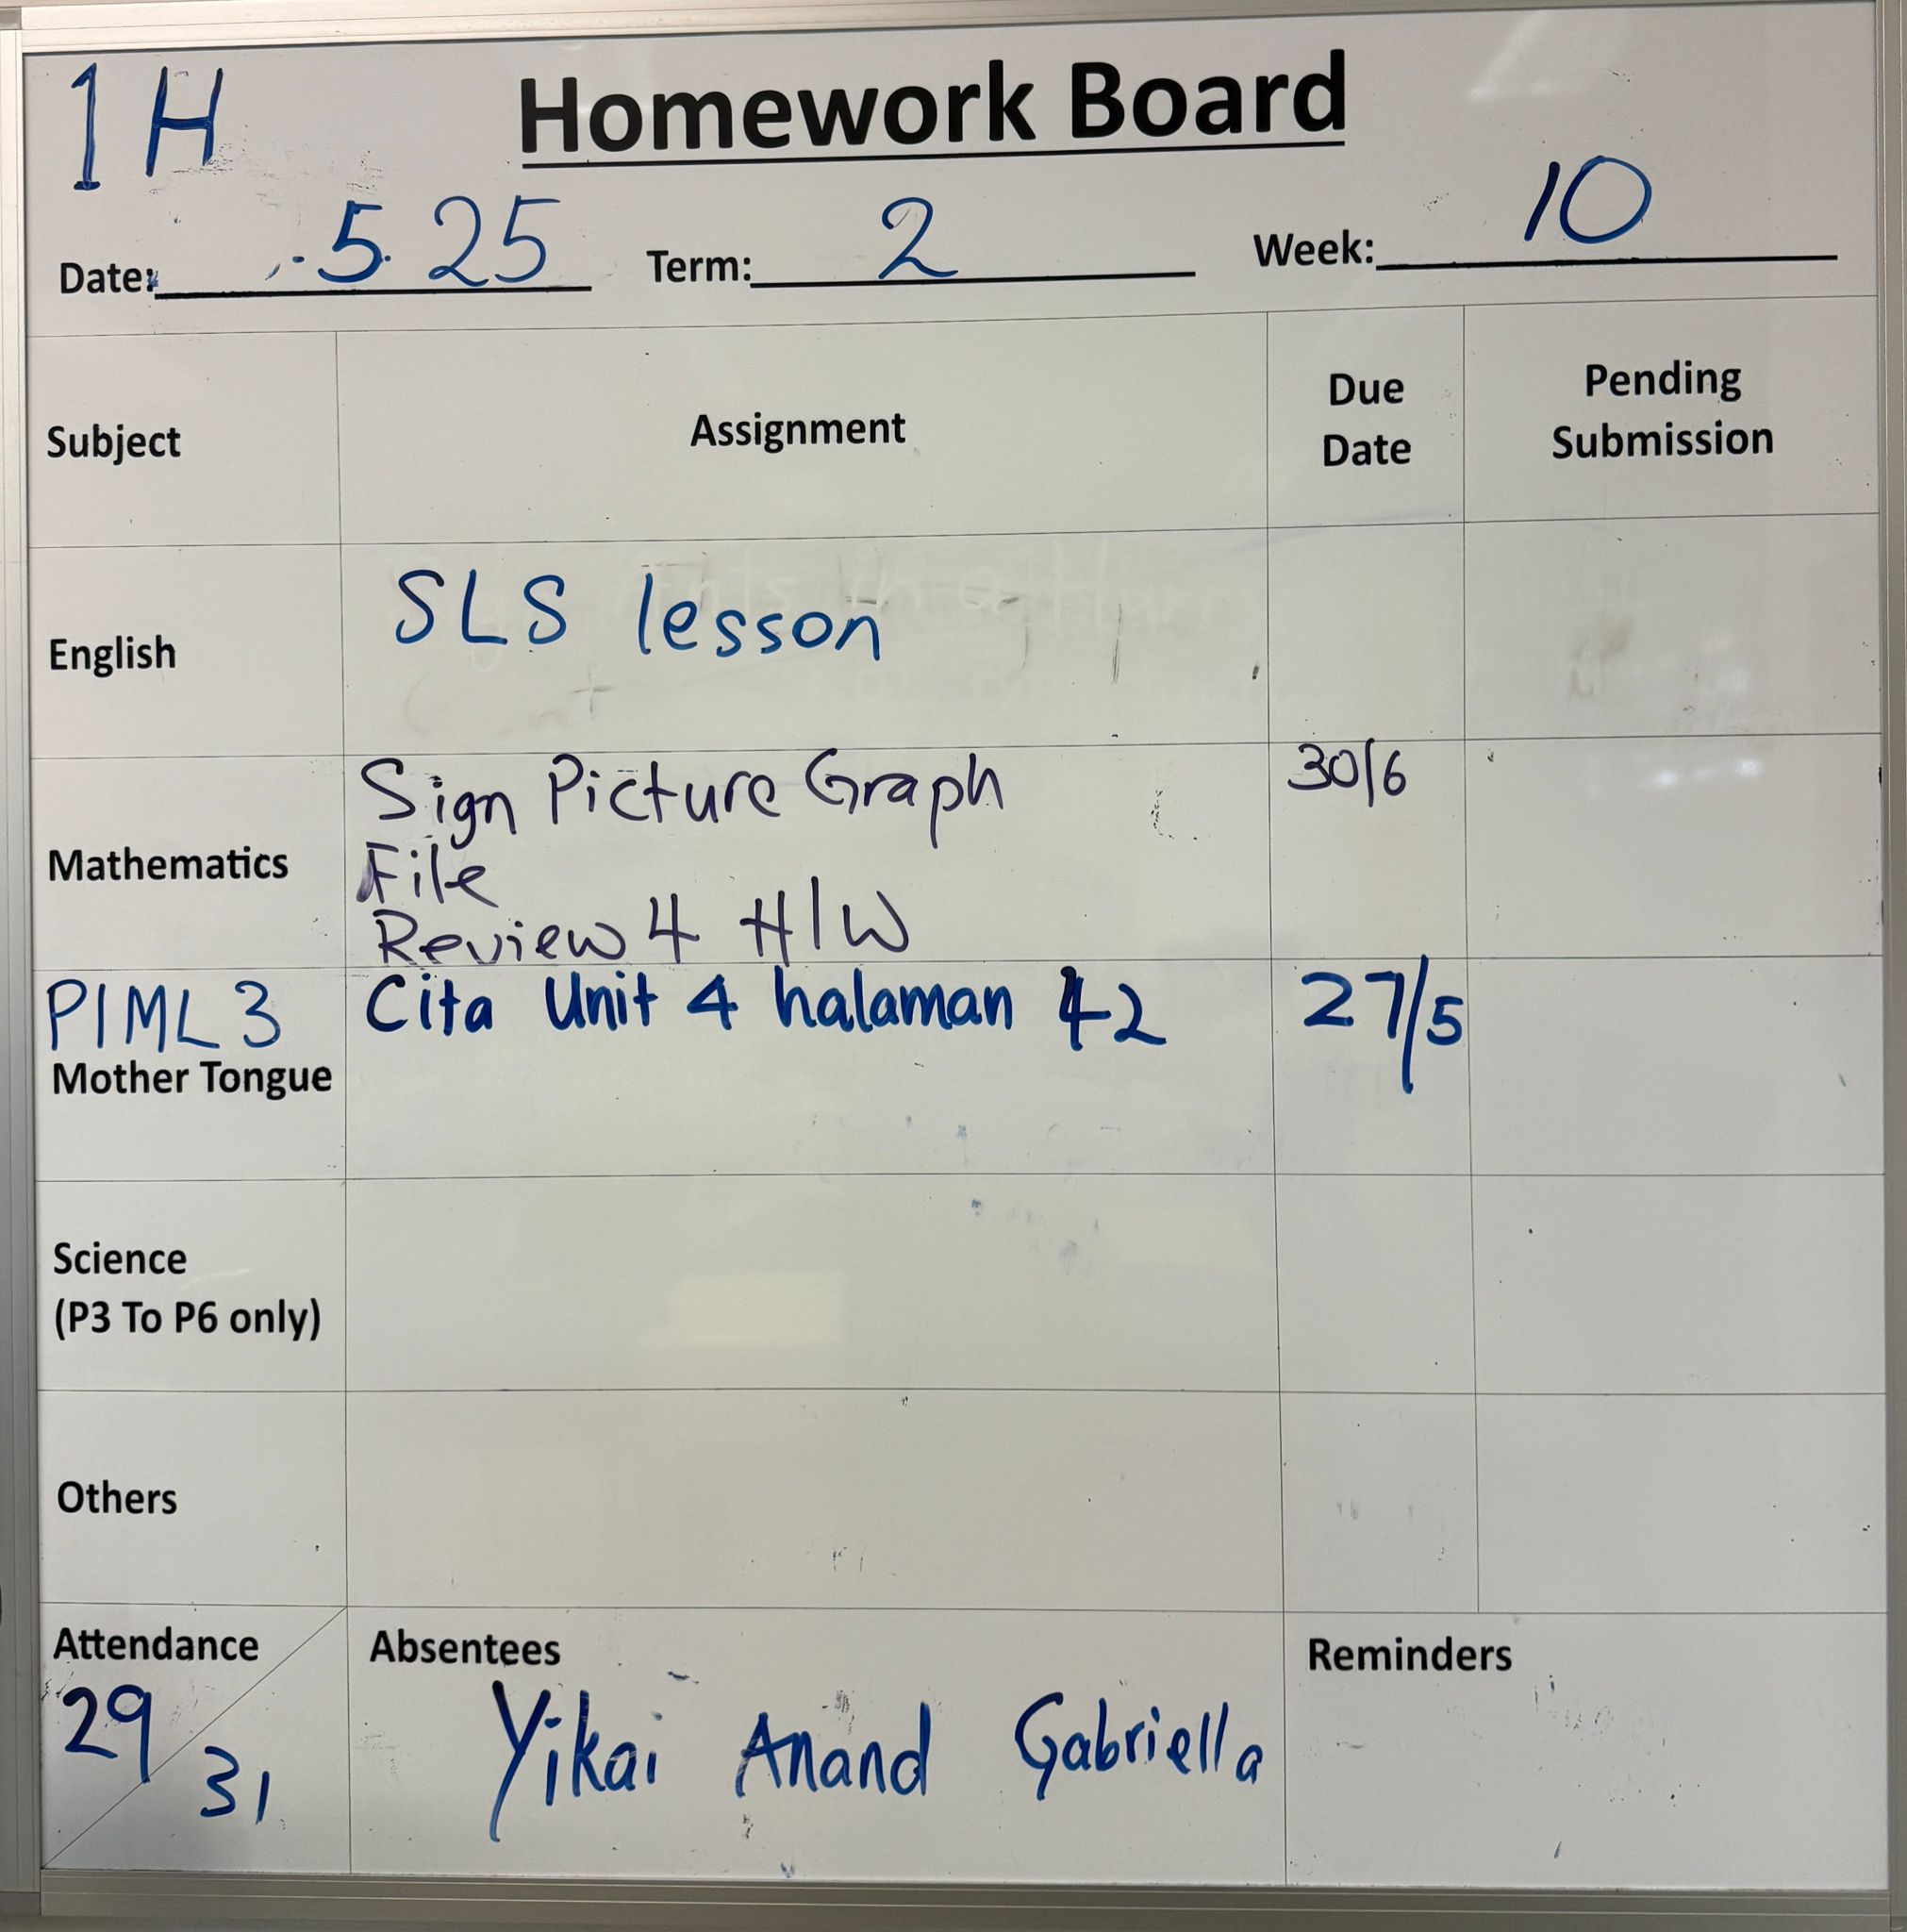 1H
Homework Board
Date: . 5. 25 Term: 2 Week: 10
Subject Assignment Due Date Pending Submission
English SLS lesson
Mathematics Sign Picture Graph 30/6
File
Review 4 H/W
PIML 3 Cita Unit 4 halaman 42 27/5
Mother Tongue
Science
(P3 To P6 only)
Others
Attendance Absentees Reminders
29/31 Yikai Anand Gabriella